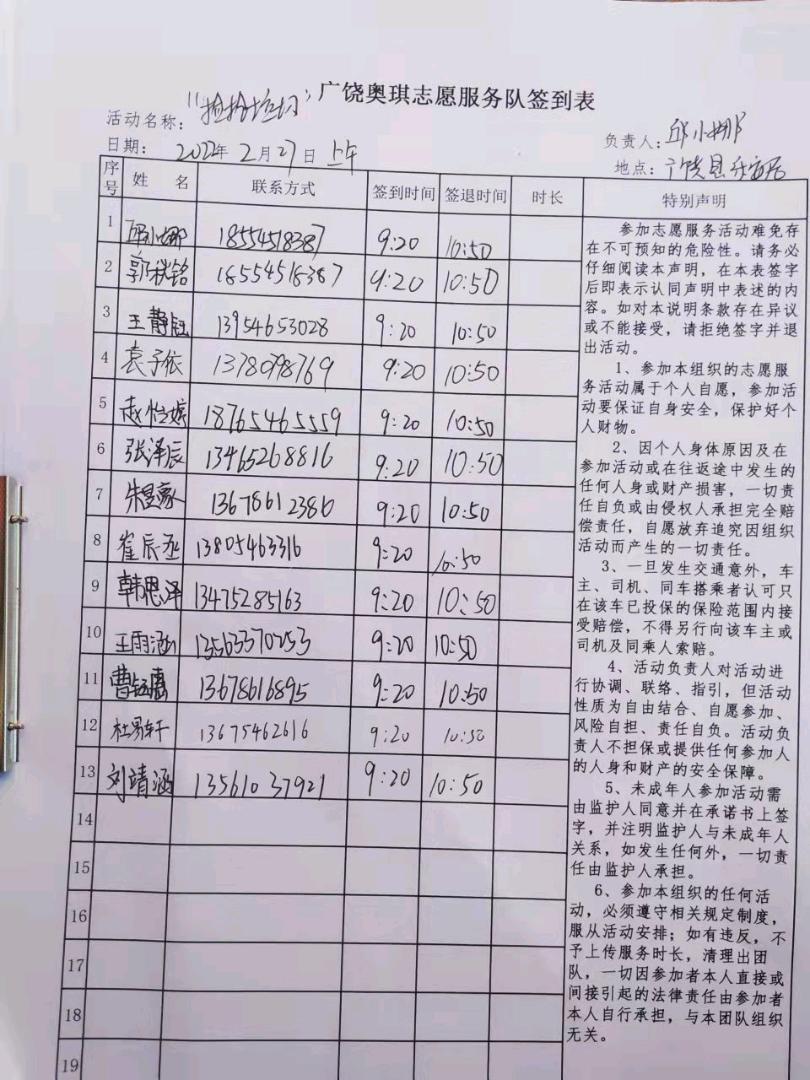 广饶奥琪志愿服务队签到表
活动名称：
负责人：邱小娜
日期：2022年2月27日上午
地点：广饶县
序号 姓 名 联系方式 签到时间 签退时间 时长 特别声明
1 邱小娜 18554518387 9:20 10:50
2 郭秋铭 18554518387 9:20 10:50
3 王静钰 13954653028 9:20 10:50
4 袁子依 1378098769 9:20 10:50
5 赵怡婷 18765465559 9:20 10:50
6 张泽辰 13465268816 9:20 10:50
7 朱昱豪 13678612386 9:20 10:50
8 崔辰丞 13805463316 9:20 10:50
9 韩思泽 13475285163 9:20 10:50
10 王雨涵 13563370253 9:20 10:50
11 曹钰 13678616895 9:20 10:50
12 杜易轩 13675462616 9:20 10:50
13 刘靖涵 13561037921 9:20 10:50
14
15
16
17
18
19
参加志愿服务活动难免存
在不可预知的危险性。请务必
仔细阅读本声明，在本表签字
后即表示认同声明中表述的内
容。如对本说明条款存在异议
或不能接受，请拒绝签字并退
出活动。
1、参加本组织的志愿服
务活动属于个人自愿，参加活
动要保证自身安全，保护好个
人财物。
2、因个人身体原因及在
参加活动或在往返途中发生的
任何人身或财产损害，一切责
任自负或由侵权人承担完全赔
偿责任，自愿放弃追究因组织
活动而产生的一切责任。
3、一旦发生交通意外，车
主、司机、同车搭乘者认可只
在该车已投保的保险范围内接
受赔偿，不得另行向该车主或
司机及同乘人索赔。
4、活动负责人对活动进
行协调、联络、指引，但活动
性质为自由结合、自愿参加、
风险自担、责任自负。活动负
责人不担保或提供任何参加人
的人身和财产的安全保障。
5、未成年人参加活动需
由监护人同意并在承诺书上签
字，并注明监护人与未成年人
关系，如发生任何外，一切责
任由监护人承担。
6、参加本组织的任何活
动，必须遵守相关规定制度，
服从活动安排；如有违反，不
予上传服务时长，清理出团
队，一切因参加者本人直接或
间接引起的法律责任由参加者
本人自行承担，与本团队组织
无关。